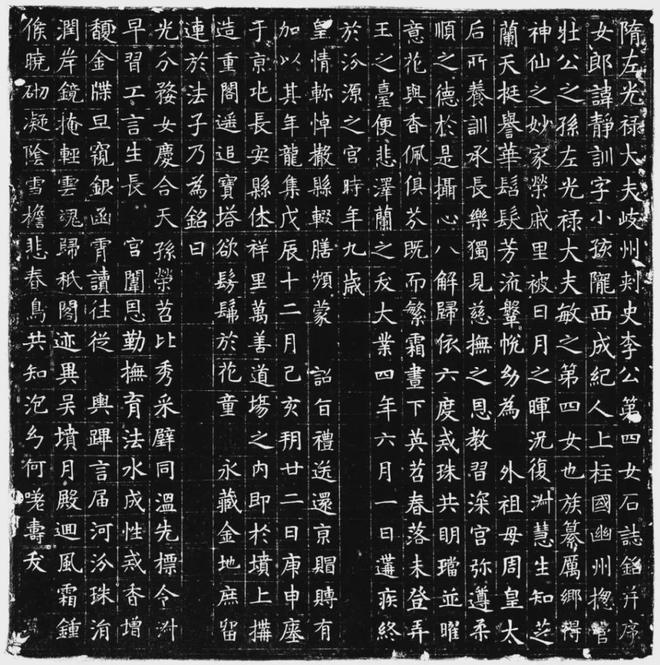 隋左光禄大夫岐州刺史李公第四女石誌銘并序
女郎諱靜訓字小孩隴西成紀人上柱國幽州揔管
壯公之孫左光禄大夫敏之第四女也族纂厲鄉得
神仙之妙家榮戚里被日月之暉況復淑慧生知芝
蘭天挺譽華髫髮芳流鞶帨幼為 外祖母周皇太
后所養訓承長樂獨見慈撫之恩教習深宮弥遵柔
順之德於是攝心八解歸依六度戒珠共明璫並曜
意花與香佩俱芬既而繁霜晝下英苕春落未登弄
玉之臺便悲澤蘭之夭大業四年六月一日遘疾終
於汾源之宮時年九歲
皇情軫悼撤縣輟膳頻蒙 詔旨禮送還京賵賻有
加以其年龍集戊辰十二月己亥朔廿二日庚申瘞
于京地長安縣休祥里萬善道塲之内即於墳上搆
造重閣遥追寶塔欲髣髴於花童 永藏金地庶留
連於法子乃為銘曰
光分婺女慶合天孫榮苕比秀采璧同溫先標令淑
早習工言生長 宮闈恩勤撫育法水成性戒香增
馥金牒旦窺銀函霄讀往從 輿蹕言屆河汾珠涓
潤岸鏡掩輕雲魂歸秖閣迹異吴墳月殿迴風霜鍾
候曉砌凝隂雪檐悲春鳥共知泡幻何嗟壽夭